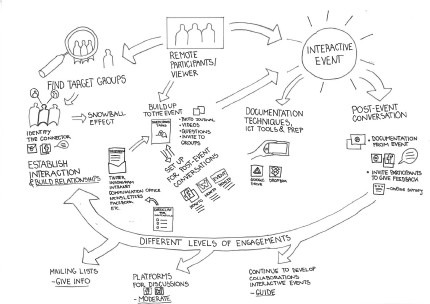 REMOTE
PARTICIPANTS/
VIEWER
INTERACTIVE
EVENT
FIND TARGET GROUPS
SNOWBALL
EFFECT
IDENTIFY
THE CONNECTOR
ESTABLISH
INTERACTION
& BUILD RELATIONSHIPS
BUILD UP
TO THE EVENT
VIDEOS
QUESTIONS
INVITE TO
GROUPS
SET UP
FOR POST-EVENT
CONVERSATIONS
TWITTER
INSTAGRAM
INTRANET
COMMUNICATION OFFICE
NEWSLETTERS
FACEBOOK
ETC.
DOCUMENTATION
TECHNIQUES,
ICT TOOLS & PREP
GOOGLE
DRIVE
DROPBOX
POST-EVENT
CONVERSATION
DOCUMENTATION
FROM EVENT
INVITE PARTICIPANTS
TO GIVE FEEDBACK
ONLINE SURVEY
DIFFERENT LEVELS OF ENGAGEMENTS
MAILING LISTS
- GIVE INFO
PLATFORMS
FOR DISCUSSIONS
- MODERATE
CONTINUE TO DEVELOP
COLLABORATIONS
INTERACTIVE EVENTS
- GUIDE